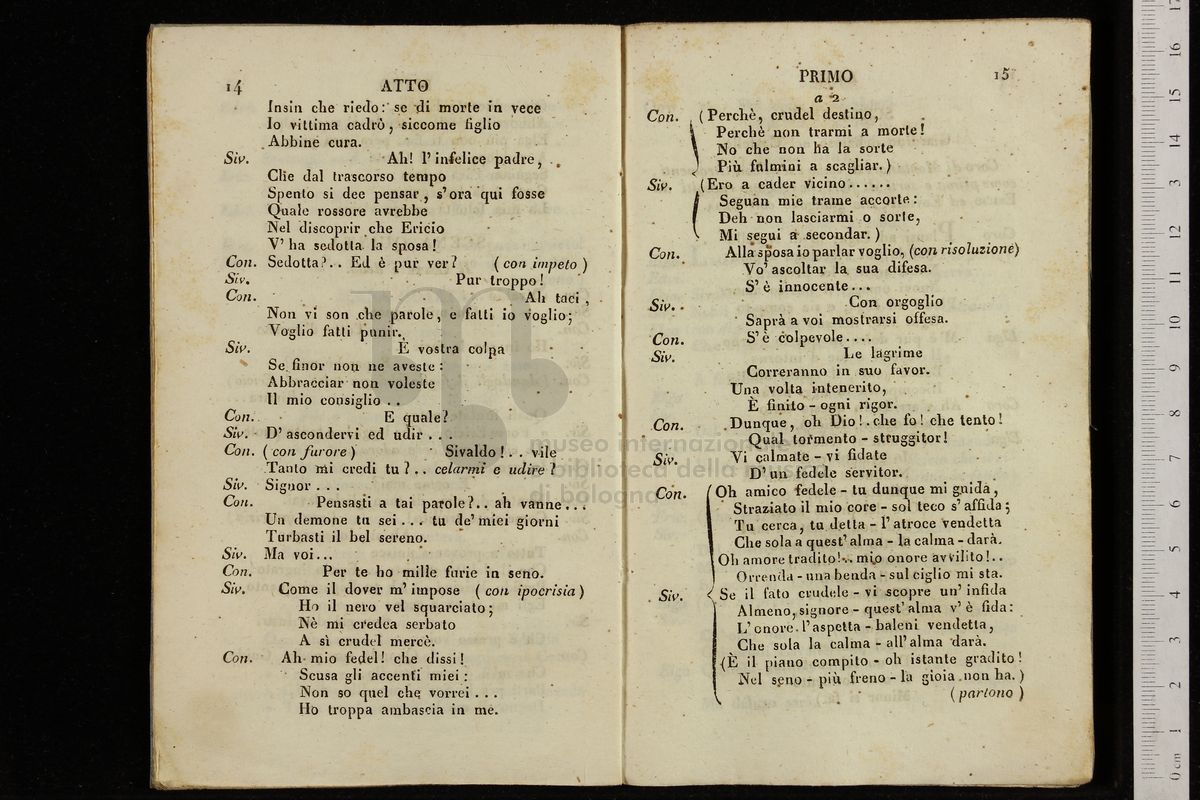 14 ATTO
Insin che riedo: se di morte in vece
Io vittima cadrò, siccome figlio
Abbine cura.
Siv. Ah! l'infelice padre,
Che dal trascorso tempo
Spento si dee pensar, s'ora qui fosse
Quale rossore avrebbe
Nel discoprir che Ericio
V'ha sedotta la sposa!
Con. Sedotta?.. Ed è pur ver? (con impeto)
Siv. Pur troppo!
Con. Ah taci,
Non vi son che parole, e fatti io voglio;
Voglio fatti punir.
Siv. È vostra colpa
Se finor non ne aveste:
Abbracciar non voleste
Il mio consiglio . .
Con. E quale?
Siv. D'ascondervi ed udir . . .
Con. (con furore) Sivaldo!.. vile
Tanto mi credi tu?.. celarmi e udire?
Siv. Signor . . .
Con. Pensasti a tai parole?.. ah vanne...
Un demone tu sei... tu de' miei giorni
Turbasti il bel sereno.
Siv. Ma voi...
Con. Per te ho mille furie in seno.
Siv. Come il dover m'impose (con ipocrisia)
Ho il nero vel squarciato;
Nè mi credea serbato
A sì crudel mercè.
Con. Ah mio fedel! che dissi!
Scusa gli accenti miei:
Non so quel che vorrei . . .
Ho troppa ambascia in me.
PRIMO 15
a 2
Con. (Perchè, crudel destino,
Perchè non trarmi a morte!
No che non ha la sorte
Più fulmini a scagliar.)
Siv. (Ero a cader vicino......
Seguan mie trame accorte:
Deh non lasciarmi o sorte,
Mi segui a secondar.)
Con. Alla sposa io parlar voglio, (con risoluzione)
Vo' ascoltar la sua difesa.
S'è innocente...
Siv. Con orgoglio
Saprà a voi mostrarsi offesa.
Con. S'è colpevole....
Siv. Le lagrime
Correranno in suo favor.
Una volta intenerito,
È finito - ogni rigor.
Con. Dunque, oh Dio!.che fo! che tento!
Qual tormento - struggitor!
Siv. Vi calmate - vi fidate
D'un fedele servitor.
Con. Oh amico fedele - tu dunque mi guida,
Straziato il mio core - sol teco s'affida;
Tu cerca, tu detta - l'atroce vendetta
Che sola a quest'alma - la calma - darà.
Oh amore tradito!.. mio onore avvilito!..
Orrenda - una benda - sul ciglio mi sta.
Siv. Se il fato crudele - vi scopre un'infida
Almeno, signore - quest'alma v'è fida:
L'onore l'aspetta - baleni vendetta,
Che sola la calma - all'alma darà.
(È il piano compito - oh istante gradito!
Nel seno - più freno - la gioia non ha.)
(partono)
museo internazionale
e biblioteca della musica
di bologna
0 cm 1 2 3 4 5 6 7 8 9 10 11 12 13 14 15 16 17